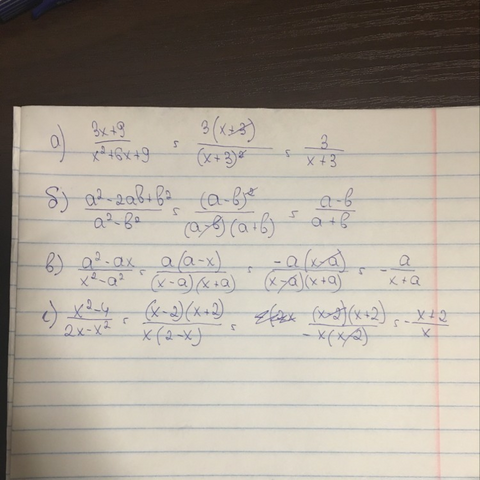 а) (3x+9)/(x²+6x+9) = 3(x+3)/(x+3)² = 3/(x+3)
б) (a²-2ab+b²)/(a²-b²) = (a-b)²/(a-b)(a+b) = (a-b)/(a+b)
в) (a²-ax)/(x²-a²) = a(a-x)/(x-a)(x+a) = -a(x-a)/(x-a)(x+a) = -a/(x+a)
г) (x²-4)/(2x-x²) = (x-2)(x+2)/x(2-x) = (x-2)(x+2)/-x(x-2) = -(x+2)/x